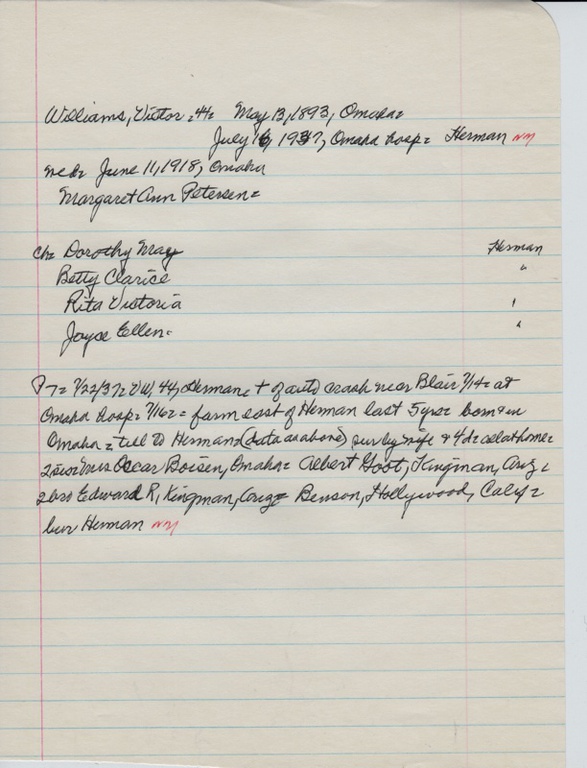 Williams, Victor = 44 = May 13, 1893, Omaha =
July 16, 1937, Omaha hosp = Herman NM
md = June 11, 1918, Omaha
Margaret Ann Petersen =
Ch = Dorothy May Herman
Betty Clarice "
Rita Victoria "
Joyce Ellen = "
P 7 = 7/22/37 = VW, 44, Herman = + of auto crash near Blair 7/14 = at
Omaha hosp = 7/16 = = farm east of Herman last 5 yrs = born + in
Omaha = till to Herman = (data as above) sur by wife + 4 d = all at home =
2 sis = Mrs Oscar Boisen, Omaha = Albert Kingman, Ariz =
2 bro Edward R, Kingman, Ariz = Benson, Hollywood, Calif =
bur Herman NM